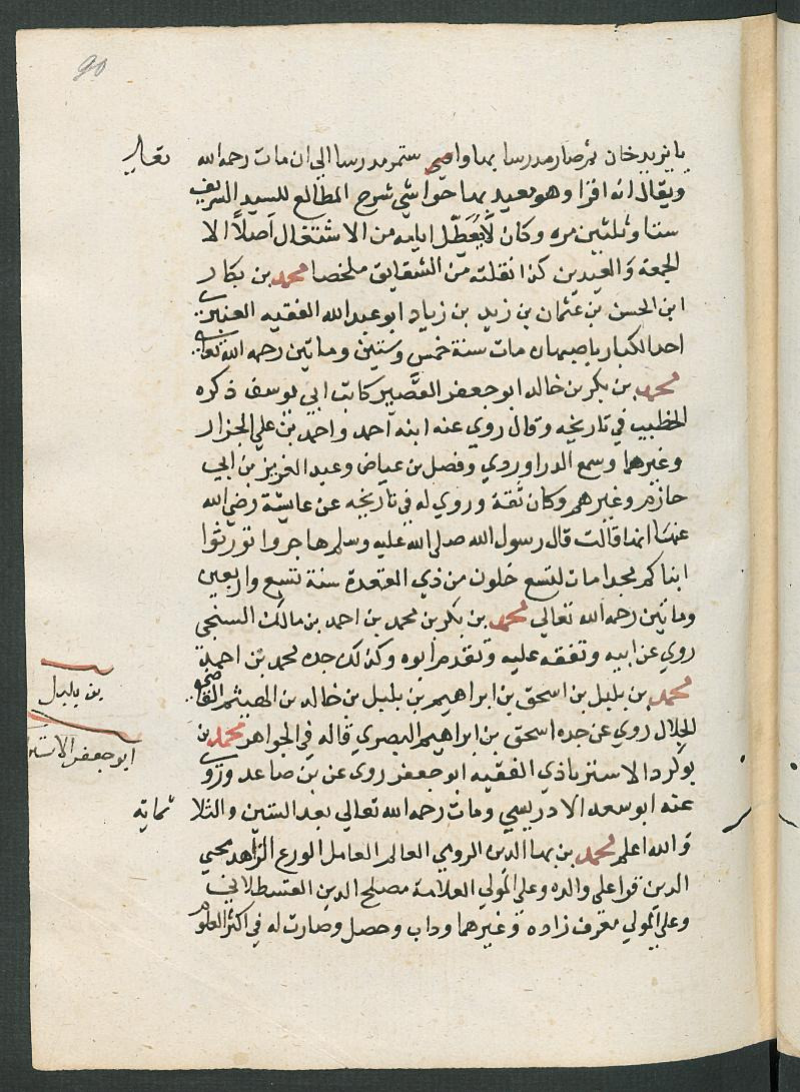 90
بايزيد خان ثم صار مدرسا بها واستمر مدرسا الي ان مات رحمه الله تعالي
ويقال انه اقرا وهو معيد بها حواشي شرح المطالع للسيد الشريف
ستا وثلثين مره وكان لا يُعَطّل ايامه من الاشتغال اصلاً الا
الجمعة والعيدين كذا نقلته من الشقايق ملخصا محمد بن بكار
ابن الحسن بن عثمان بن زيد بن زياد ابو عبد الله الفقيه العنبري
احد الكبار باصبهان مات سنة خمس وستين وماتين رحمه الله تعالي
محمد بن بكر بن خالد ابو جعفر القصير كاتب ابي يوسف ذكره
الخطيب في تاريخه وقال روي عنه ابنه احمد واحمد بن علي الخزار
وغيرهما وسمع الدراوردي وفضل بن عياض وعبد العزيز بن ابي
حازم وغيرهم وكان ثقة وروي له في تاريخه عن عايشة رضي الله
عنها انها قالت قال رسول الله صلي الله عليه وسلم هاجروا تورثوا
ابناكم مجدا مات لتسع خلون من ذي القعدة سنة تسع واربعين
وماتين رحمه الله تعالي محمد بن بكر بن محمد بن احمد بن مالك السنجي
روي عن ابيه وتفقه عليه وتقدم ابوه وكذلك جده محمد بن احمد
محمد بن بلبل بن اسحق بن ابراهيم بن بلبل بن خالد بن الهيثم القاضي
الجلال روي عن جده اسحق بن ابراهيم البصري قاله في الجواهر محمد بن
بولرد الاسترباذي الفقيه ابو جعفر روي عن بن صاعد وروي
عنه ابو سعد الادريسي ومات رحمه الله تعالي بعد الستين والثلا ثمايه
والله اعلم محمد بن بها الدين الرومي العالم العامل الورع الزاهد محيي
الدين قرا علي والده وعلي المولي العلامة مصلح الدين القسطلاني
وعلي المولي معرف زاده وغيرهما وداب وحصل وصارت له في اكثر العلوم
بن بلبل
ابو جعفر